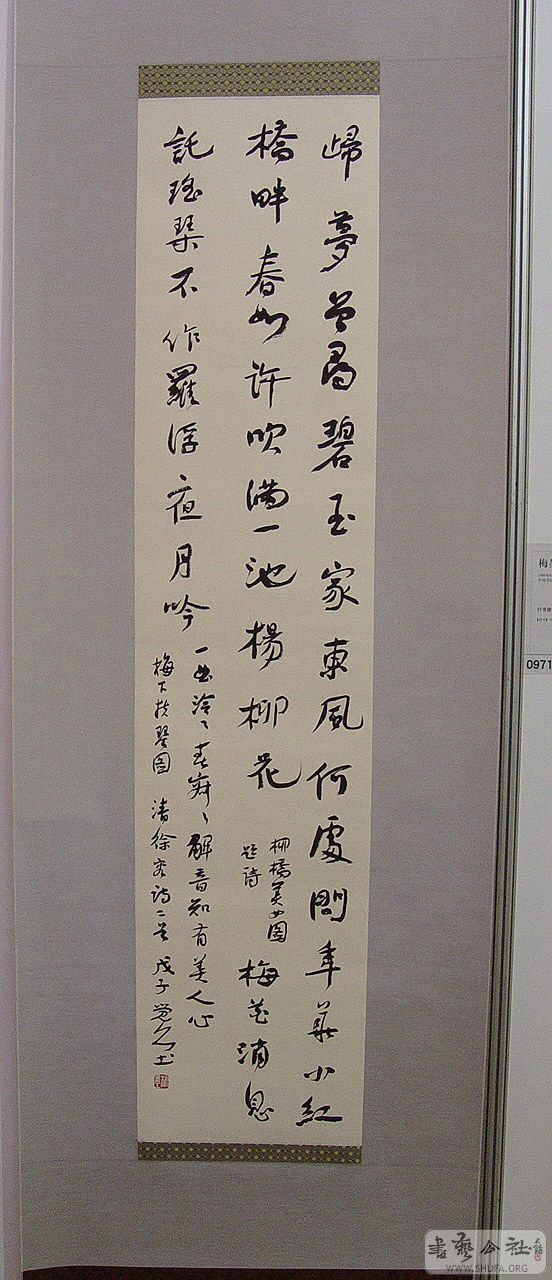 歸夢曾尋碧玉家東風何處問年華小紅
橋畔春如許吹滿一池楊柳花
柳橋美女圖
題詩
梅花消息
託瑤琴不作羅浮夜月吟
一曲泠泠春寂寂解音知有美人心
梅下撫琴圖 清徐 詩二首 戊子
0971
書藝公社
WWW.SHUFA.ORG